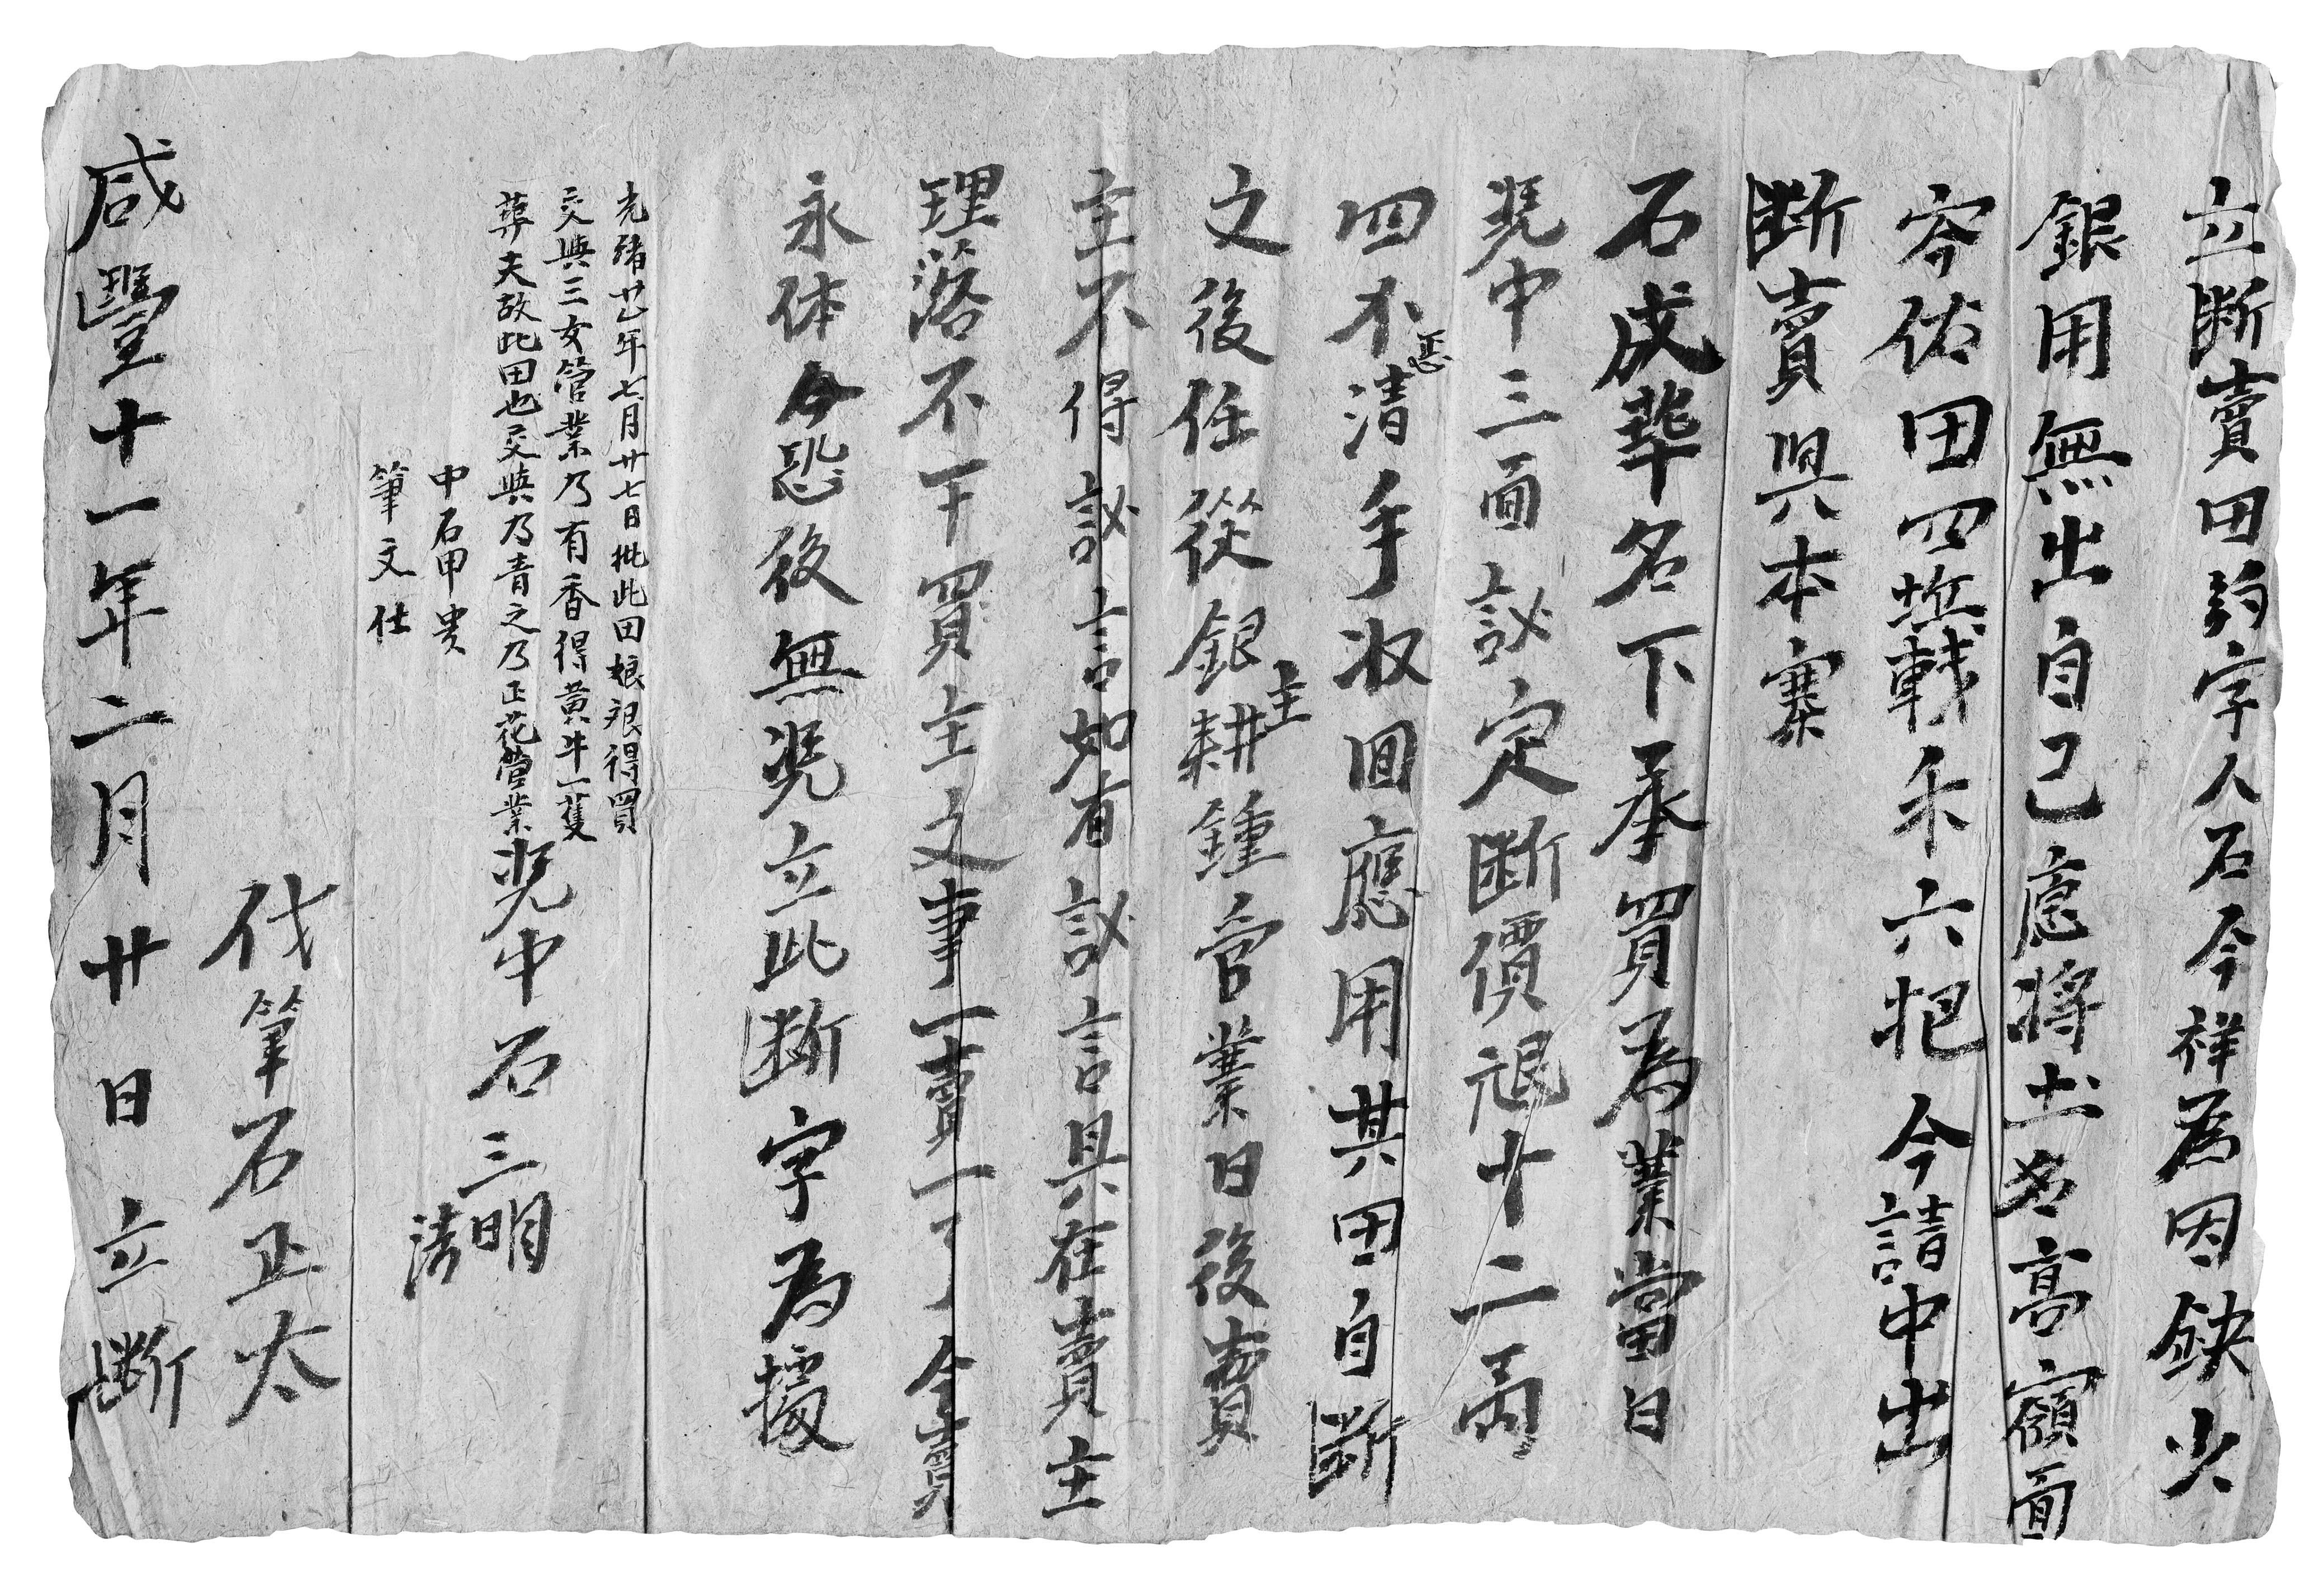 立断賣田約字人石今祥為因缺少
銀用無出自己應將土名高嶺面
岑佑田四坵載禾六把今請中出
断賣與本寨
石成華名下承買為業當日
凴中三面訟定断價艮十二両
四不清手收回應用其田自断
悉
之後任從銀耕鍾官業日後賣
主
主不得訟言如有訟言具在賣主
理落不干買主之事一賣一了今賣
永休今恐後無凴立此断字為據
光緒廿七年七月廿七日批此田娘艮得買
交與三女管業乃有香得黃牛一隻
葬夫故此田也交與乃青之乃正花管業
中石甲貴
筆文仕
凴中石三明
清
代筆石正太
咸豐十一年二月廿日立断